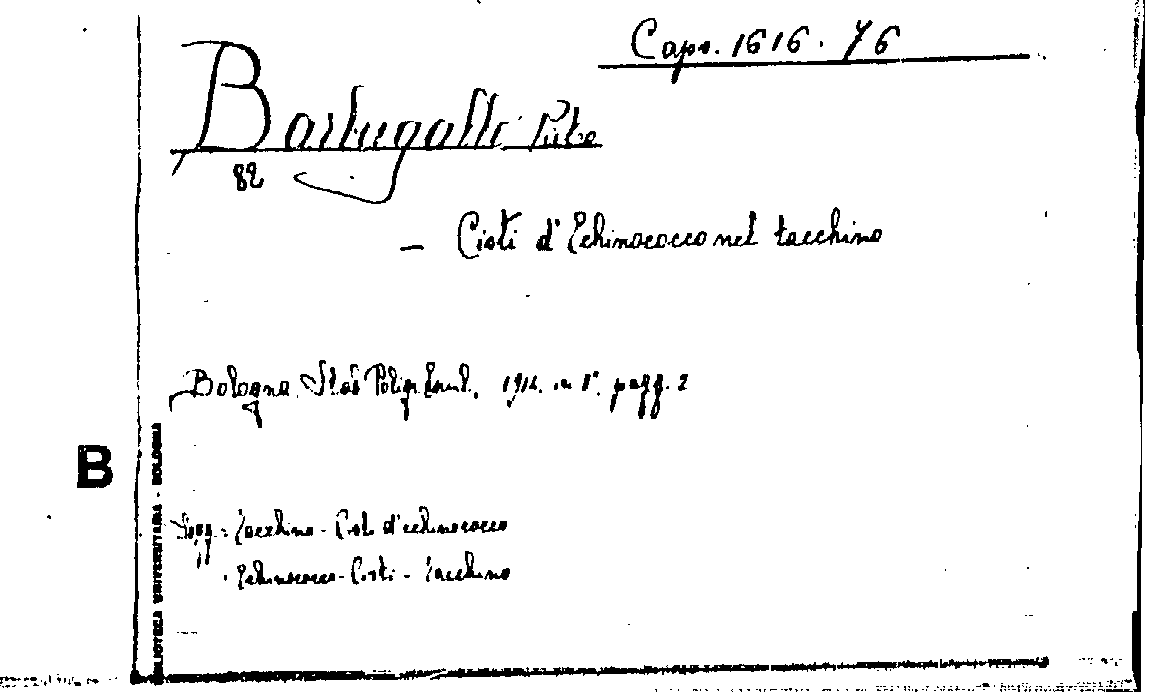 Caps. 1616. 76
Barbagallo Pietro
82
— Cisti d'Echinococco nel tacchino
Bologna, Stab. Polig. Emil. 1912. in 8°. pagg. 2
B
BIBLIOTECA UNIVERSITARIA - BOLOGNA
Sogg: Tacchino - Cisti d'echinococco
Echinococco - Cisti - Tacchino